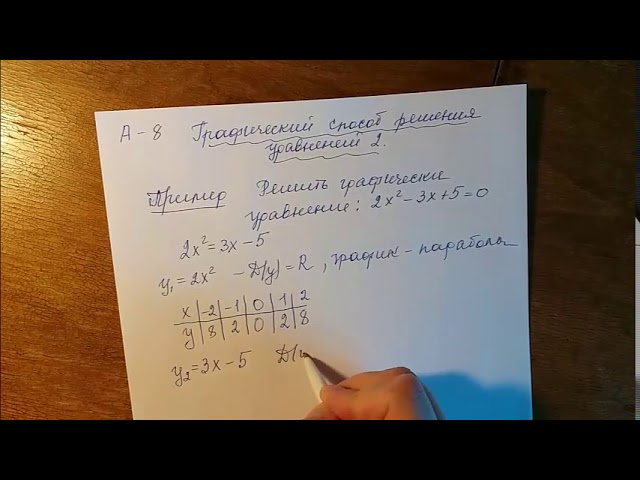 А-8 Графический способ решения
уравнений 2.
Пример Решить графически
уравнение: 2x²-3x+5=0
2x²=3x-5
y₁=2x² - D(y)=R, график - парабола
x | -2 | -1 | 0 | 1 | 2
y | 8 | 2 | 0 | 2 | 8
y₂=3x-5 D(y